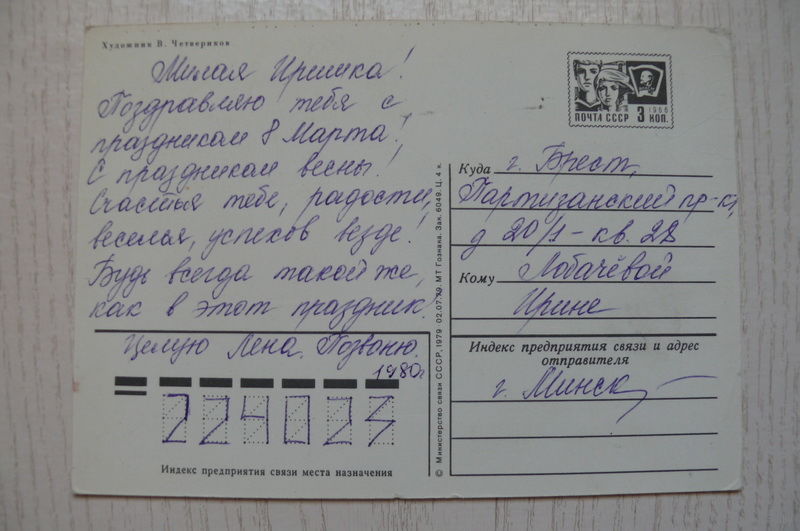 Художник В. Четвериков
Милая Иришка!
Поздравляю тебя с
праздником 8 Марта!
С праздником весны!
Счастья тебе, радости,
веселья, успехов везде!
Будь всегда такой же,
как в этот праздник!
Целую Лена. Позвоню.
1980г
224023
Индекс предприятия связи места назначения
© Министерство связи СССР, 1979 02.07.79. МТ Гознака. Зак. 6049. Ц. 4 к.
1966
ПОЧТА СССР 3 КОП.
Куда г. Брест,
Партизанский пр-кт,
д 20/1 - кв. 28
Кому Лобачёвой
Ирине
Индекс предприятия связи и адрес
отправителя
г. Минск